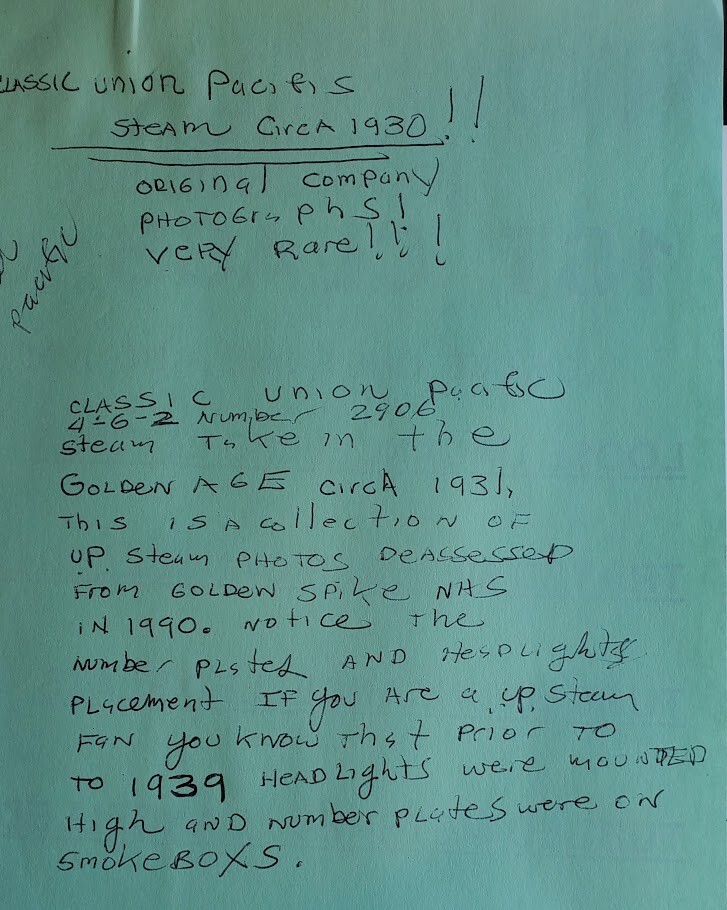 CLASSIC UNION Pacific
STEAM CIRCA 1930!!
ORIGINAl Company
PHOTOGraphS!
VERY Rare!!!
Pacific
CLASSIC UNION Pacific
4-6-2 Number 2906
Steam Take in the
GOLDEN AGE circA 1931,
THIS is A collection OF
UP. Steam PHOTOS DEASSESSED
From GOLDEN SPike NHS
iN 1990. Notice The
Number Plated AND HeaDLights
PLacement IF you Are a up. Steam
FaN you know That Prior TO
TO 1939 HEADLights were mounTED
High aND Number PLates were on
SmokeBOXS.